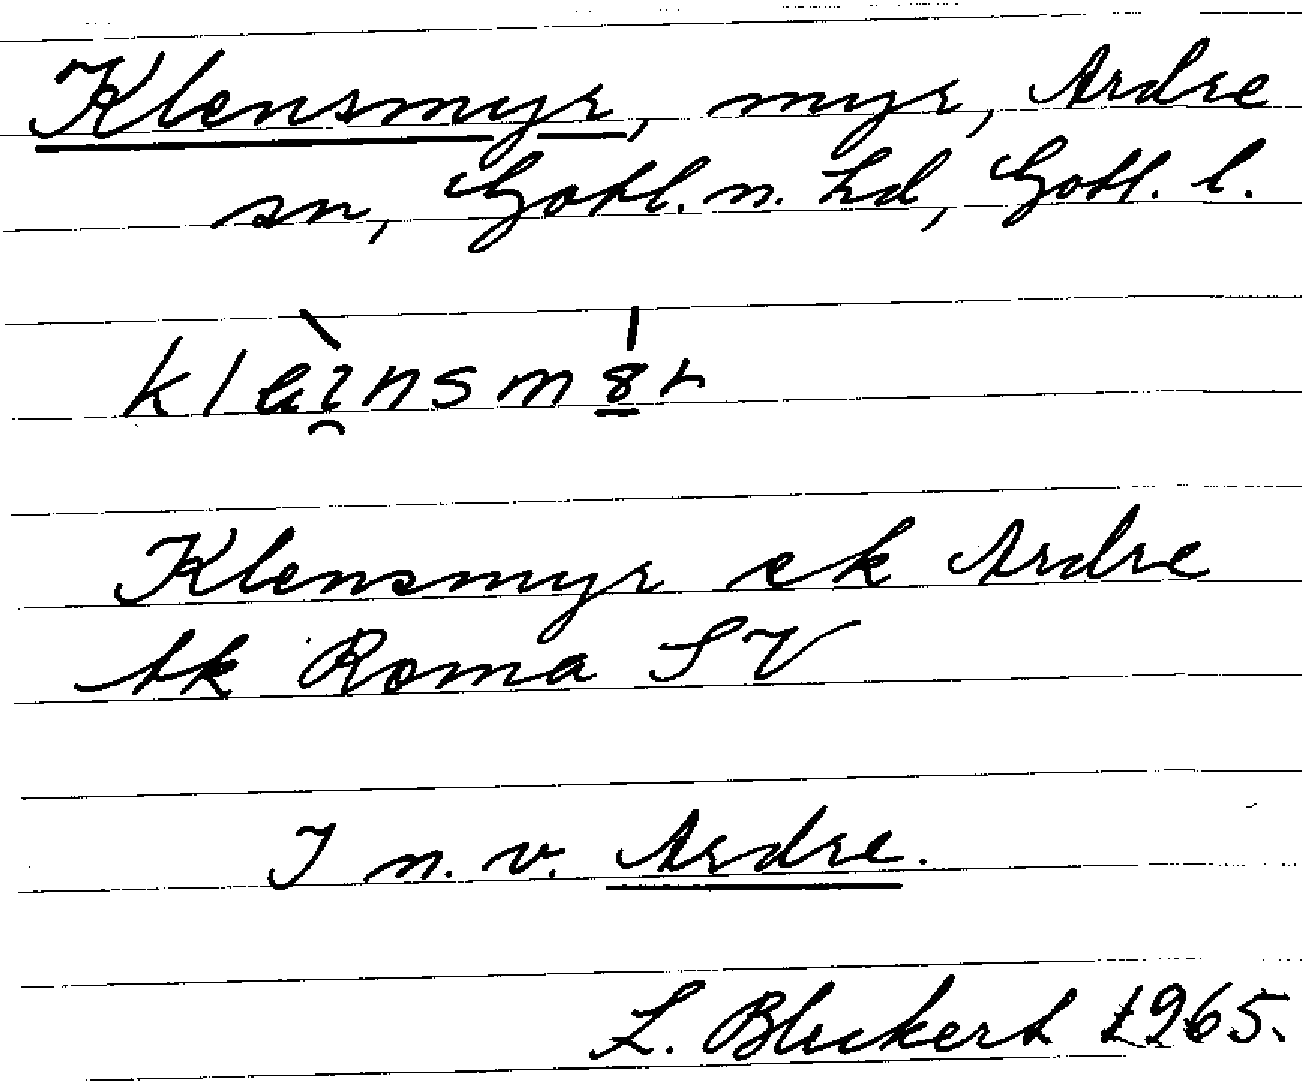 Klensmyr, myr, Ardre
sn, Gotl. n. hd, Gotl. l.
Klensmyr ek Ardre
bk Roma SV
I n. v. Ardre.
L. Bleckert 1965.